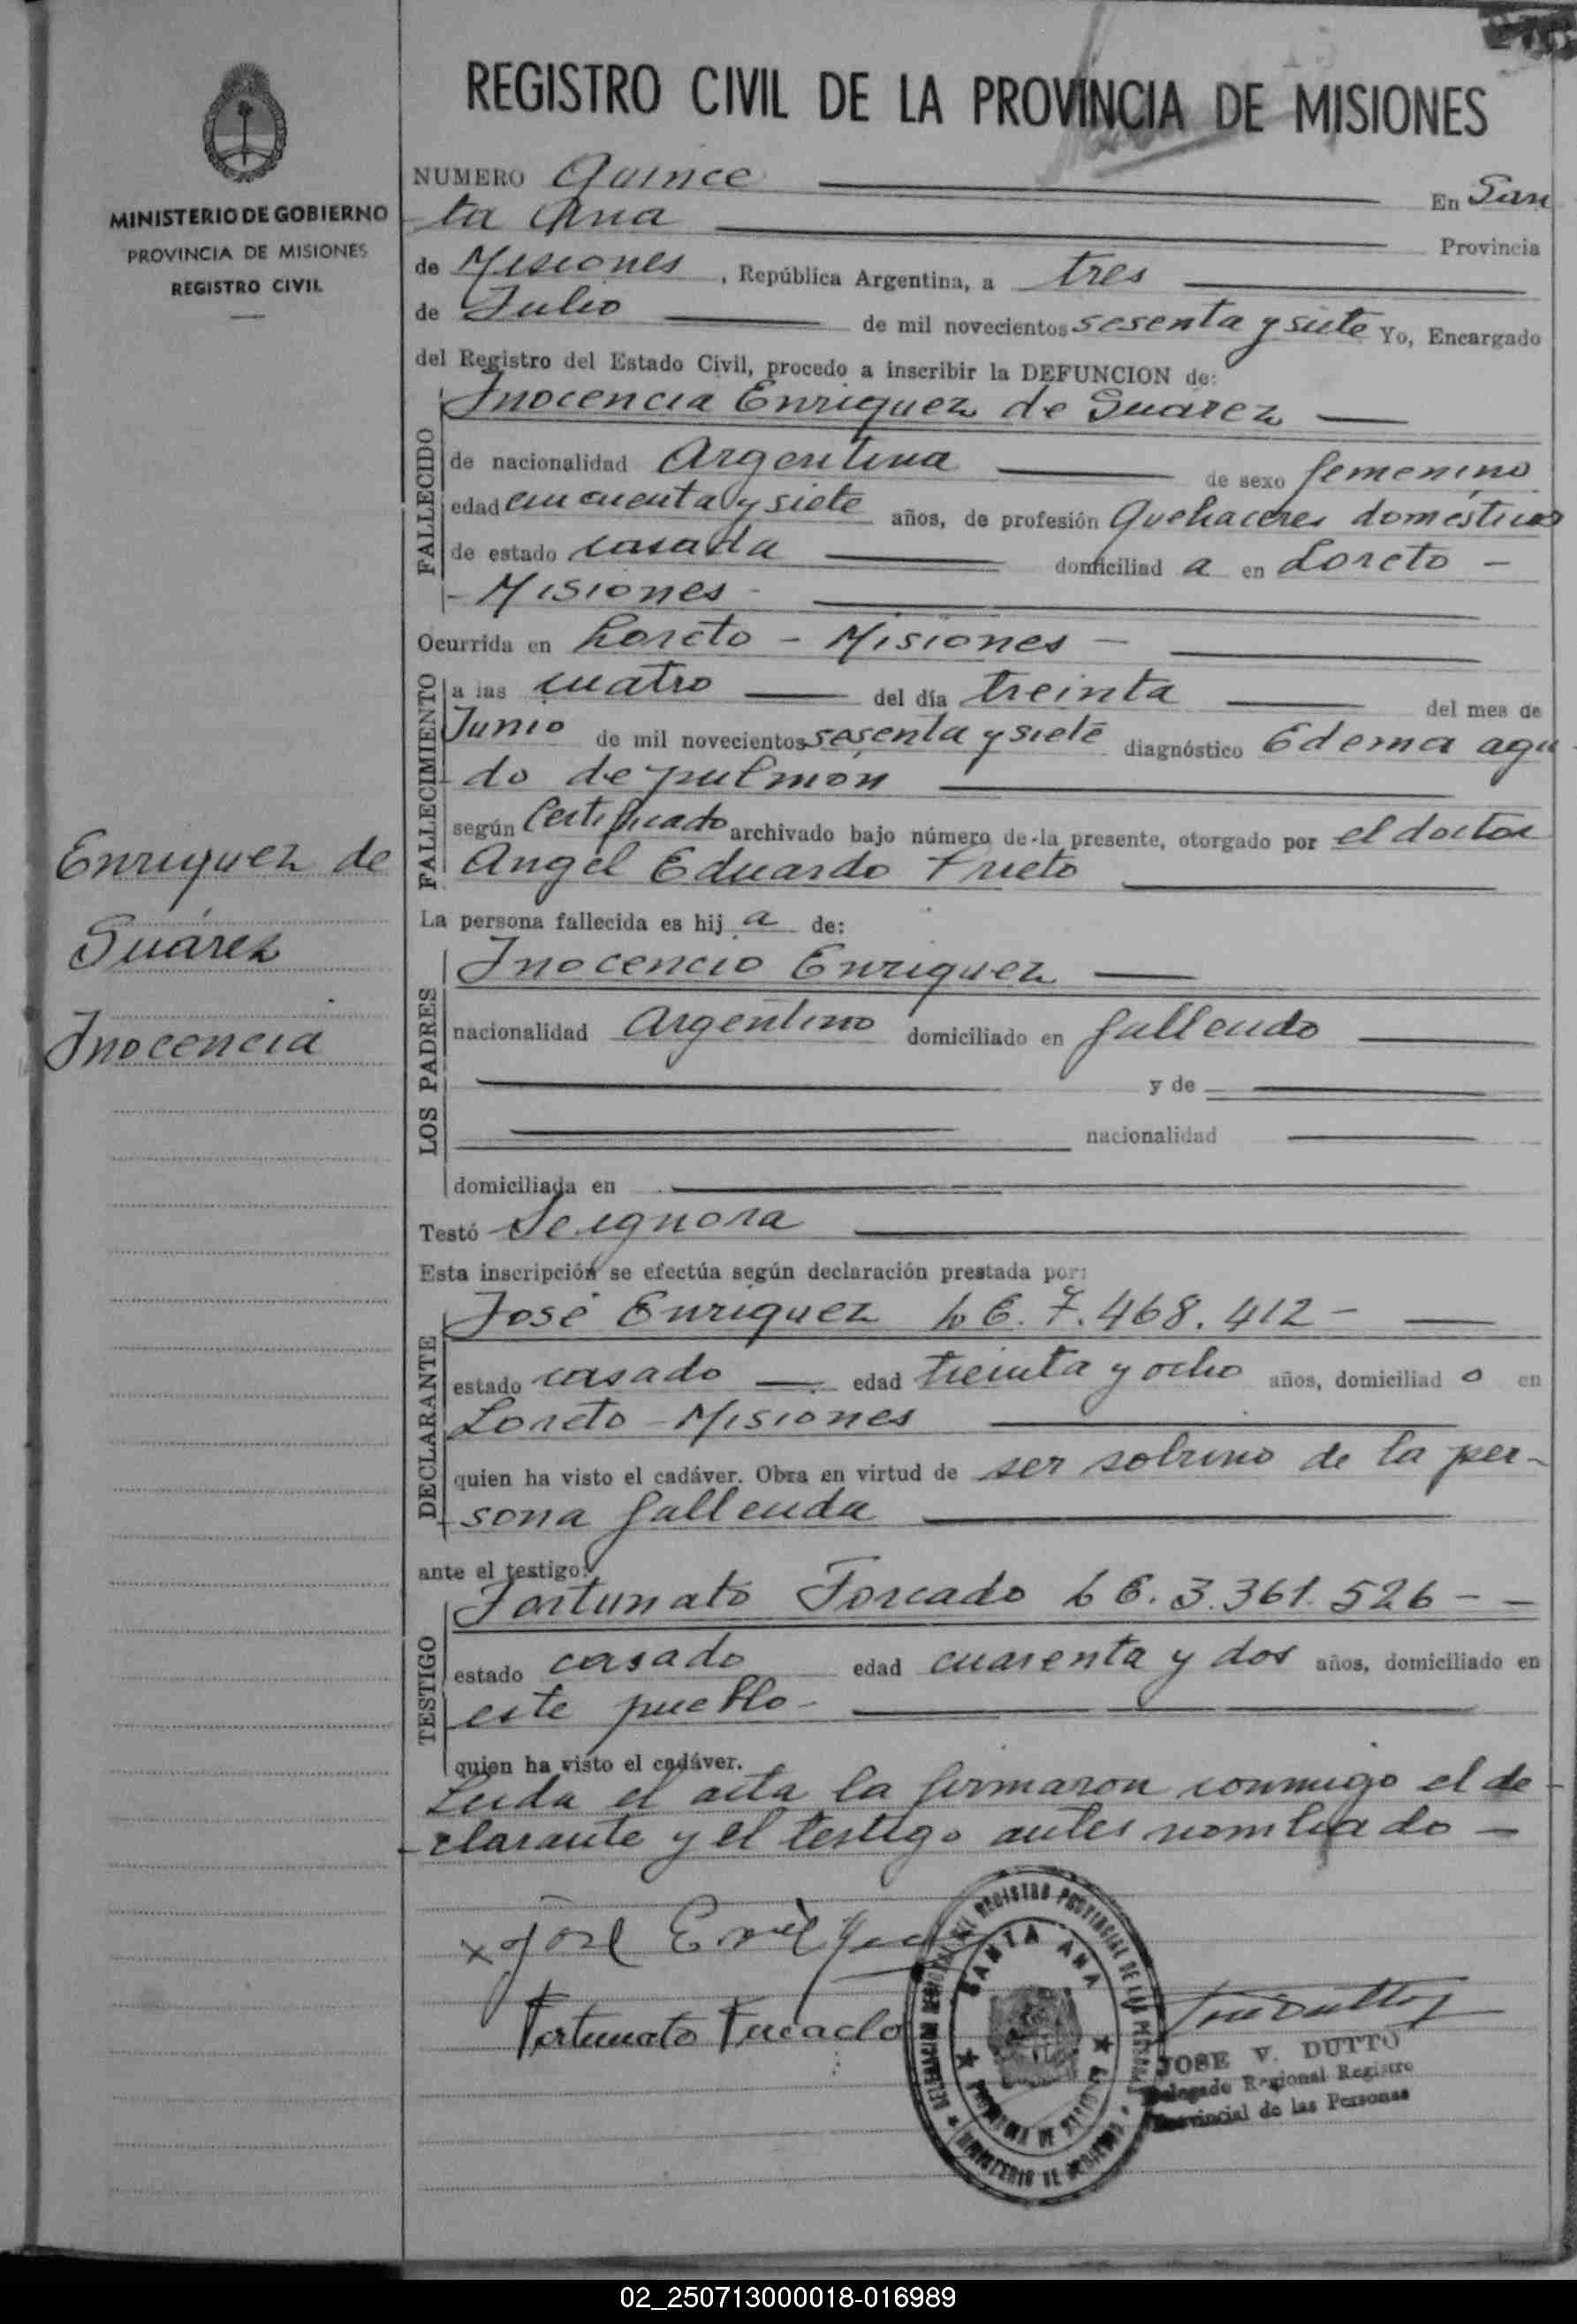 REGISTRO CIVIL DE LA PROVINCIA DE MISIONES
MINISTERIO DE GOBIERNO
PROVINCIA DE MISIONES
REGISTRO CIVIL
NUMERO Quince En San
ta Ana Provincia
de Misiones, República Argentina, a tres
de Julio de mil novecientos sesenta y siete Yo, Encargado
del Registro del Estado Civil, procedo a inscribir la DEFUNCION de:
FALLECIDO
Inocencia Enriquez de Suarez
de nacionalidad Argentina de sexo femenino
edad cincuenta y siete años, de profesión Quehaceres domésticos
de estado casada domiciliad a en Loreto -
- Misiones -
Ocurrida en Loreto - Misiones -
FALLECIMIENTO
a las cuatro del día treinta del mes de
Junio de mil novecientos sesenta y siete diagnóstico Edema agu
do de pulmón
según Certificado archivado bajo número de la presente, otorgado por el doctor
Angel Eduardo Prieto
Enriquez de
Suárez
Inocencia
La persona fallecida es hij a de:
LOS PADRES
Inocencio Enriquez
nacionalidad Argentino domiciliado en fallecido
y de
nacionalidad
domiciliada en
Testó Se ignora
Esta inscripción se efectúa según declaración prestada por:
DECLARANTE
José Enriquez L E. 7.468.412 -
estado casado edad treinta y ocho años, domiciliad o en
Loreto - Misiones
quien ha visto el cadáver. Obra en virtud de ser sobrino de la per-
sona fallecida
ante el testigo:
TESTIGO
Fortunato Forcado L E. 3.361.526 - -
estado casado edad cuarenta y dos años, domiciliado en
este pueblo -
quien ha visto el cadáver.
Leida el acta la firmaron conmigo el de-
clarante y el testigo antes nombrado -
x José Enriquez
Fortunato Furcado
SANTA ANA
JOSE V. DUTTO
Delegado Regional Registro
Provincial de las Personas
02_250713000018-016989